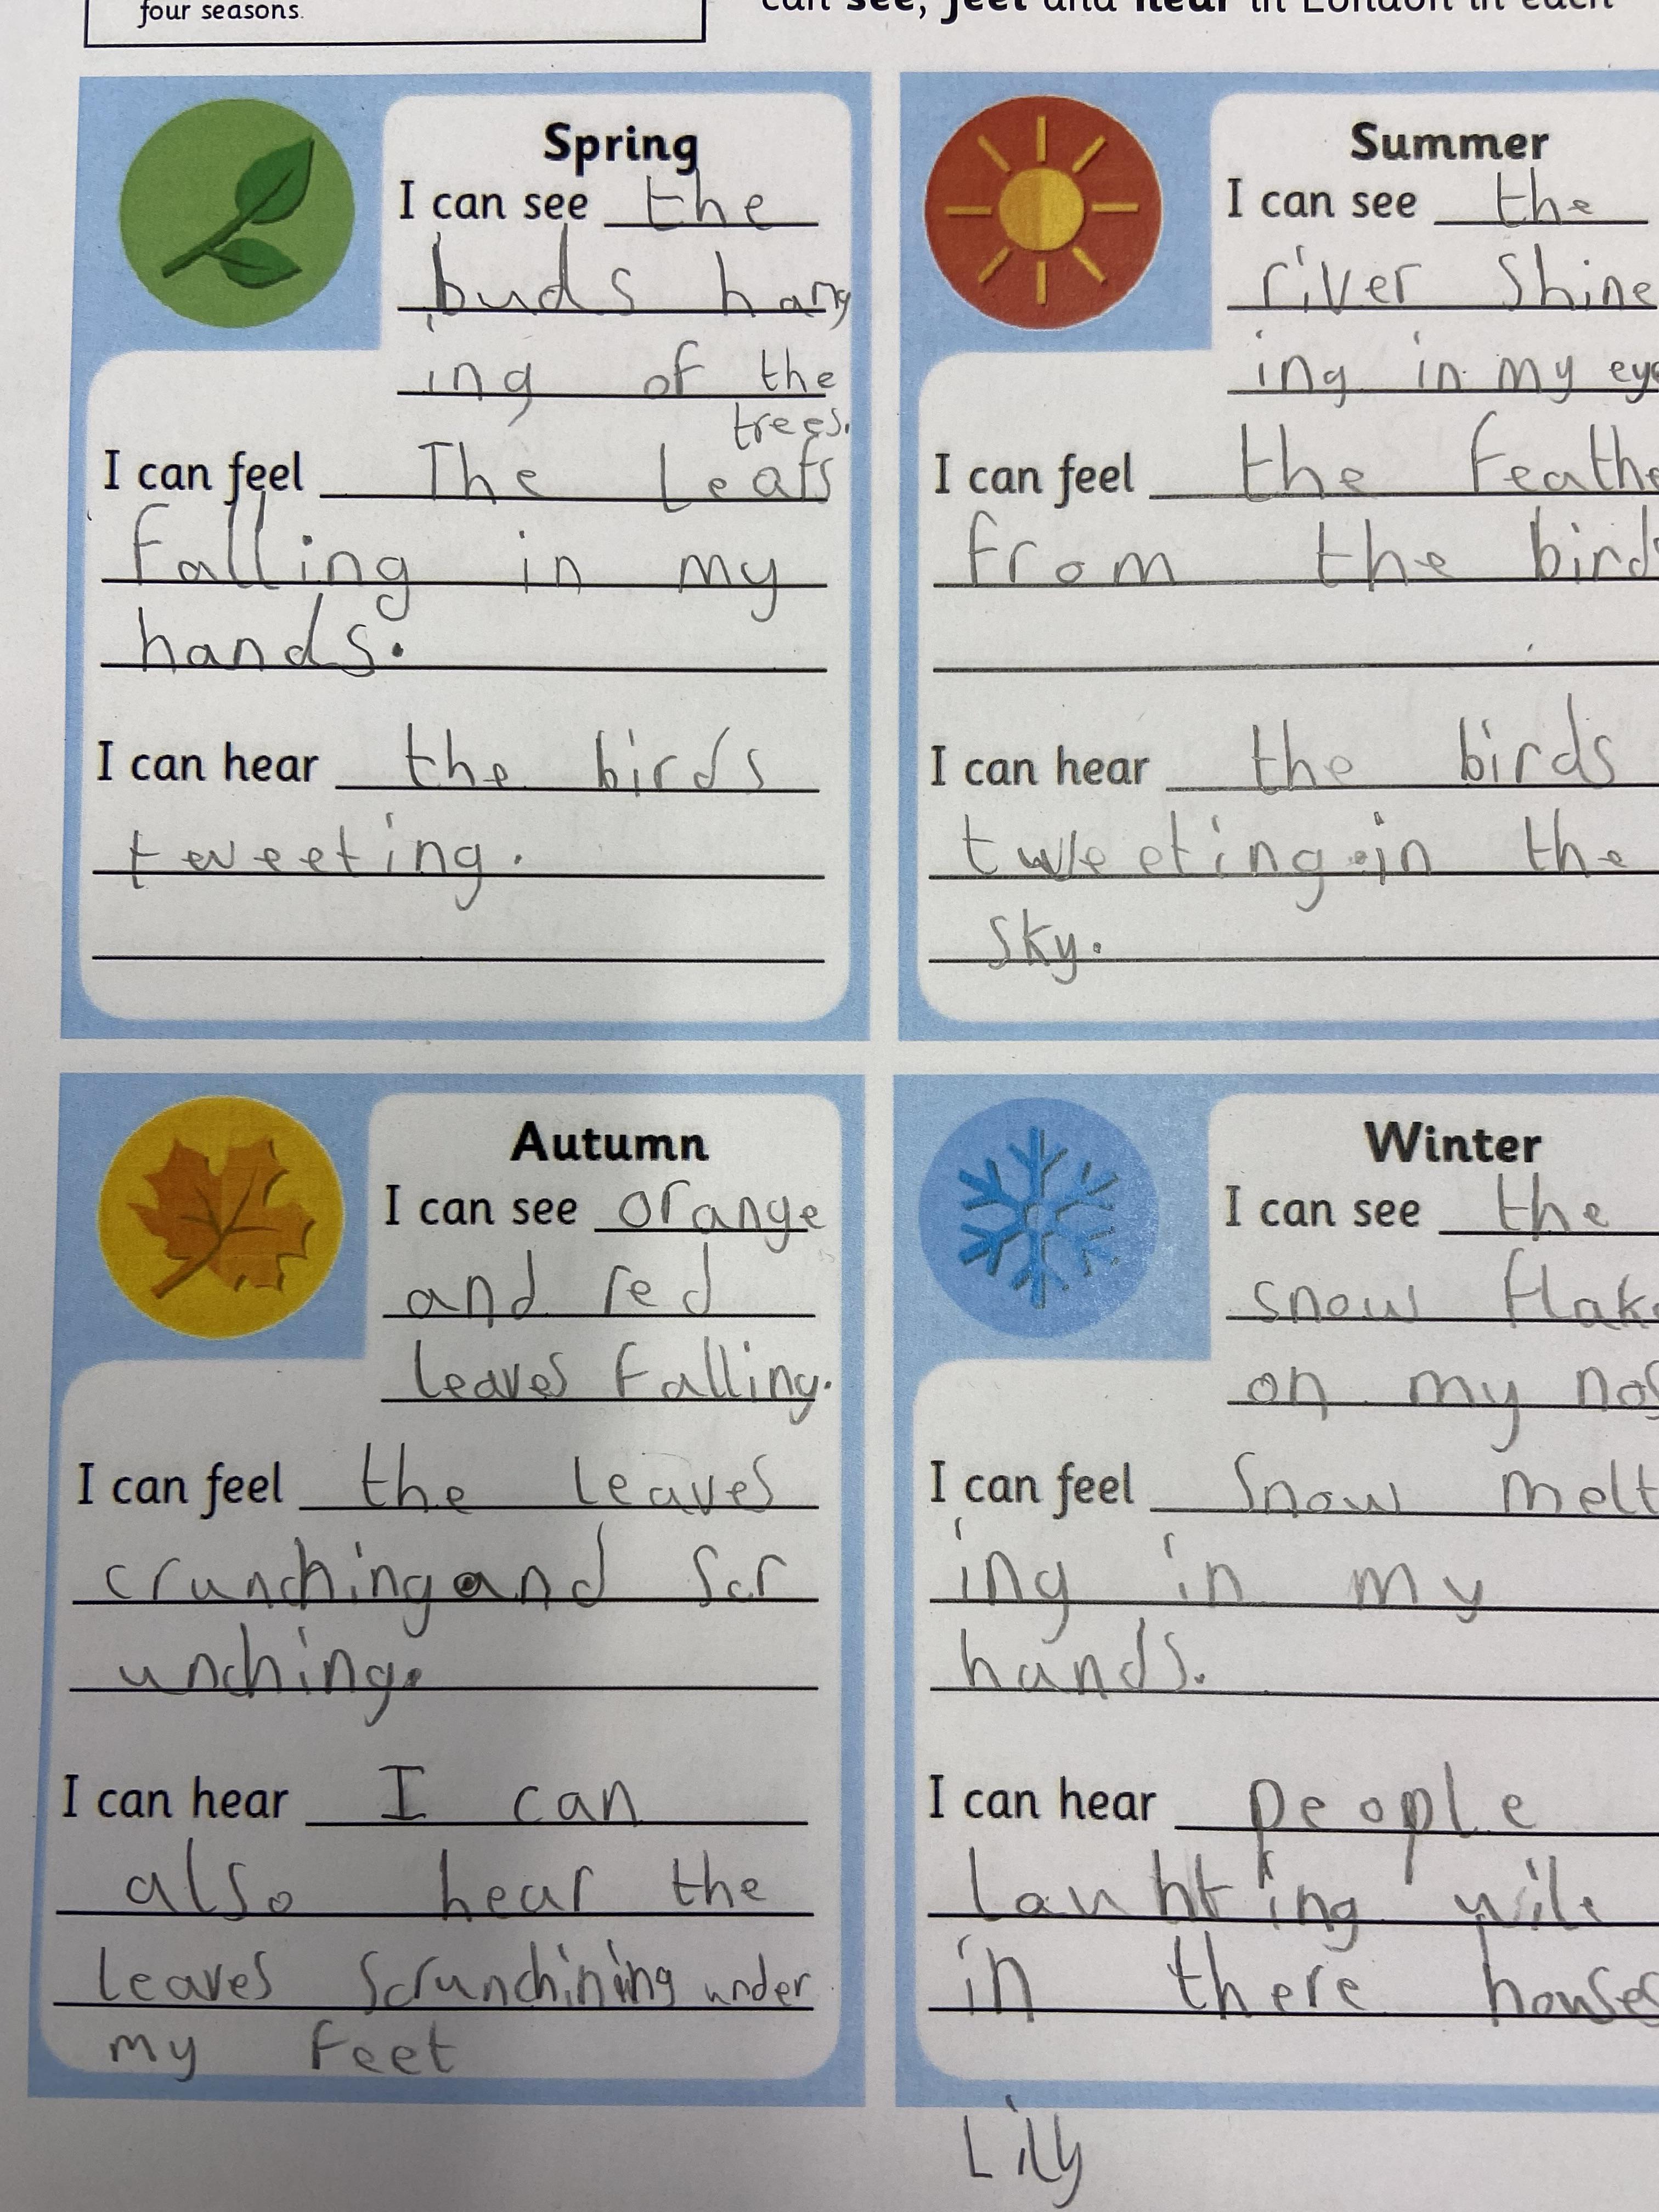 four seasons.
can see, feel and hear in London in each
Spring
I can see the
buds hang
ing of the
trees.
I can feel The Leafs
falling in my
hands.
I can hear the birds
tweeting.
Summer
I can see the
river Shine
ing in my
I can feel the
from the
I can hear the birds
tweeting in the
sky.
Autumn
I can see orange
and red
leaves falling.
I can feel the leaves
crunching and scr
unching.
I can hear I can
also hear the
leaves scrunchining under
my feet
Winter
I can see the
snow
on my
I can feel Snow melt
ing in my
hands.
I can hear people
lauhting wile
in there houses
Lilly